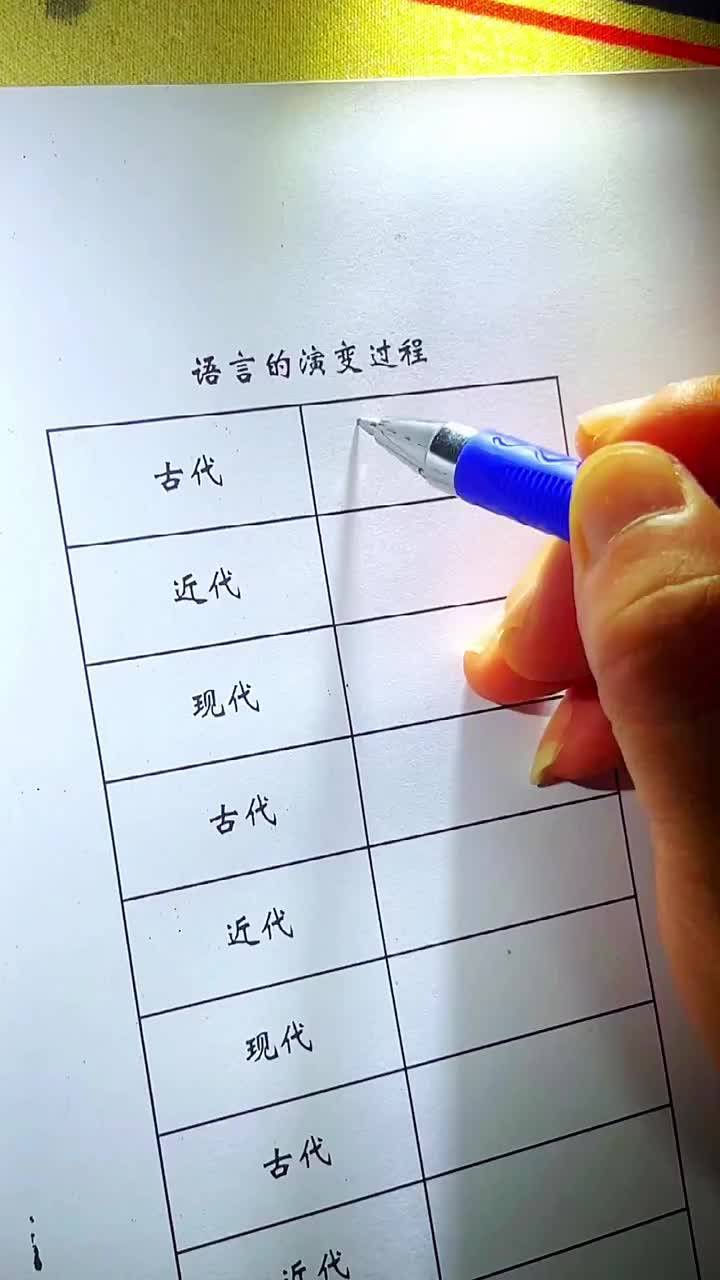 语言的演变过程
古代
近代
现代
古代
近代
现代
古代
近代